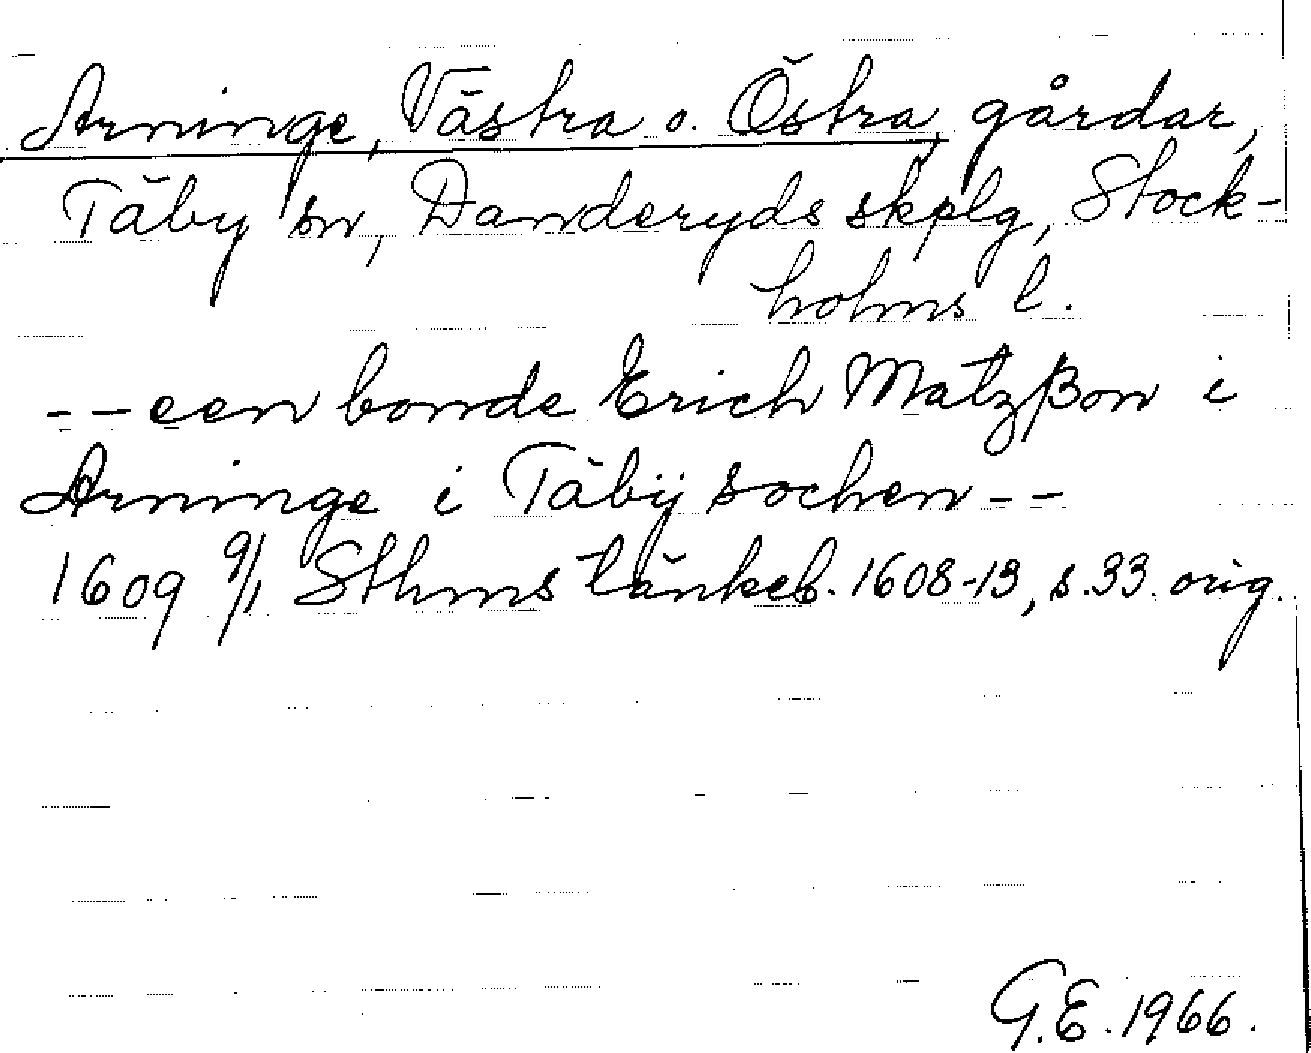 Arninge, Västra o. Östra, gårdar,
Täby sn, Danderyds skplg, Stock-
holms l.
-- een bonde Erich Matzßon i
Arninge i Täbÿ sochen --
1609 9/1 Sthms tänkeb. 1608-13, s. 33. orig.
G.E. 1966.